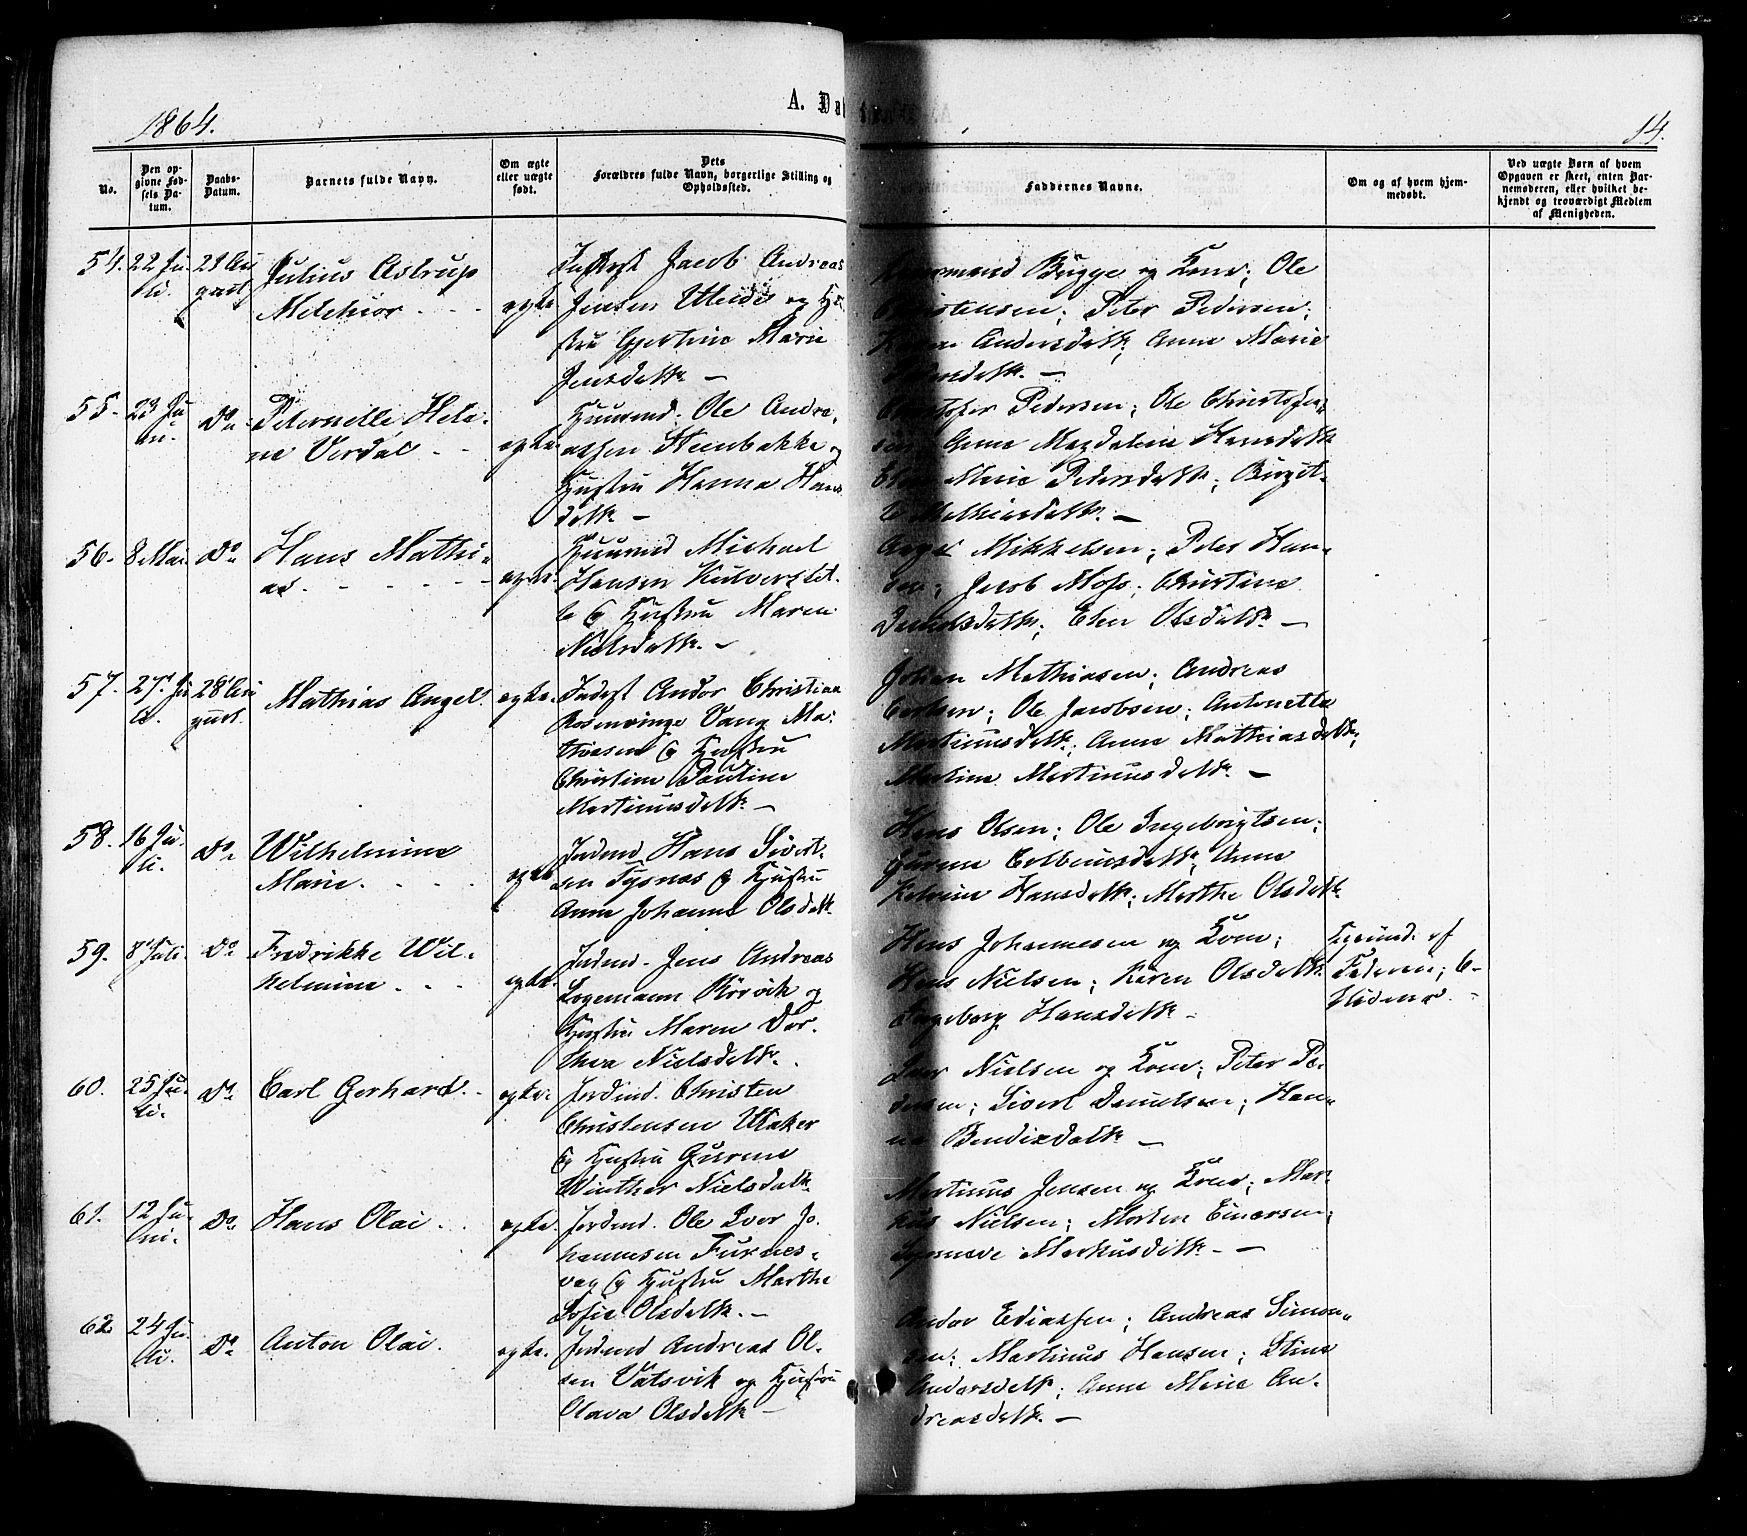 1864.
A. Daa
14.
No.
Den op-
givne Fød-
sels Da-
tum.
Daabs-
Datum.
Barnets fulde Navn.
Om ægte
eller uægte
født.
Dets
Forældres fulde Navn, borgerlige Stilling og
Opholdssted.
Faddernes Navne.
Om og af hvem hjem-
medøbt.
Ved uægte Børn af hvem
Opgaven er skeet, enten Bar-
nemoderen, eller hvilket be-
kjendt og troværdigt Medlem
af Menigheden.
54. 22 Ju-
li.
21 Au
gust
Julius Astrup
Melchior
ægte
Jacob Andreas
Jensen og Hu-
stru Gjertine Marie
Jensdatter
Bugge og Kone; Ole
Christensen; Peter Pedersen;
Andersdatter; Anne Marie
55. 23 Ju
ni.
Do
Peternelle Hele-
ne Verdal
ægte
Huusmd. Ole Andre-
assen Steenbakke og
Hustru Hanna Hans
datter
Pedersen; Ole Christofer-
sen Anne Magdalene Hansdatter
Marie Pedersdatter; Birgit-
te Mathiasdatter.
56. 8 Mai
Do
Hans Mathi-
as.
ægte.
Huusmd Michael
Hansen Kulverslet-
te & Hustru Maren
Nielsdatter.
Mikkelsen; Peter Han-
sen; Jacob Moss; Christine
Danielsdatter; Elen Olsdatter
57. 27 Ju
li.
28 Au
gust.
Mathias Angel.
ægte.
Indst Andor Christian
Rosenvinge Vang Ma-
thiasen & Hustru
Christine Pauline
Martinusdatter
Johan Mathiasen; Andreas
Ole Jacobsen; Antonette
Martinusdatter; Anne Mathiasdatter;
Martine Martinusdatter
58. 16 Ju-
li.
Do
Wilhelmine
Marie.
ægte
Inderst Hans Sivert-
sen Tysnes & Hustru
Anne Johanne Olsdatter
Hans Olsen; Ole Ingebrigtsen;
Gurine Anne
Hansdatter; Marthe Olsdatter
59. 8 Juli.
Do
Fredrikke Wil-
helmine
ægte.
Inderst Jens Andreas
Logemann Rörvik og
Hustru Maren Dor-
thea Nielsdatter.
Hans Johannesen og Kone;
Hans Nielsen; Karen Olsdatter
Ingeborg Hansdatter
af
Faderen;
60. 25 Ju-
li.
Do
Carl Gerhard.
ægte.
Jordbrd. Christen
Christensen Utaker
& Hustru Gurine
Winther Nielsdatter
Iver Nielsen og Kone; Peter Pe-
dersen; Sivert Danielsen; Han-
na Bendixdatter
61. 12 Ju-
ni.
Do
Hans Olai.
ægte.
Jordbrd. Ole Iver Jo-
hannesen Furnes-
vag & Hustru Marthe
Sofie Olsdatter.
Martinus Jensen og Kone; Mar-
kus Nielsen; Morten Einersen;
Markusdatter
62. 24 Ju
li.
Do
Anton Olai.
ægte.
Jordbrd Andreas Ol-
sen Vatsvik og Hustru
Olava Olsdatter
Andor Ediassen; Andreas Simon-
sen; Martinus Hansen; Stine
Andersdatter; Anne Marie An-
dreasdatter.